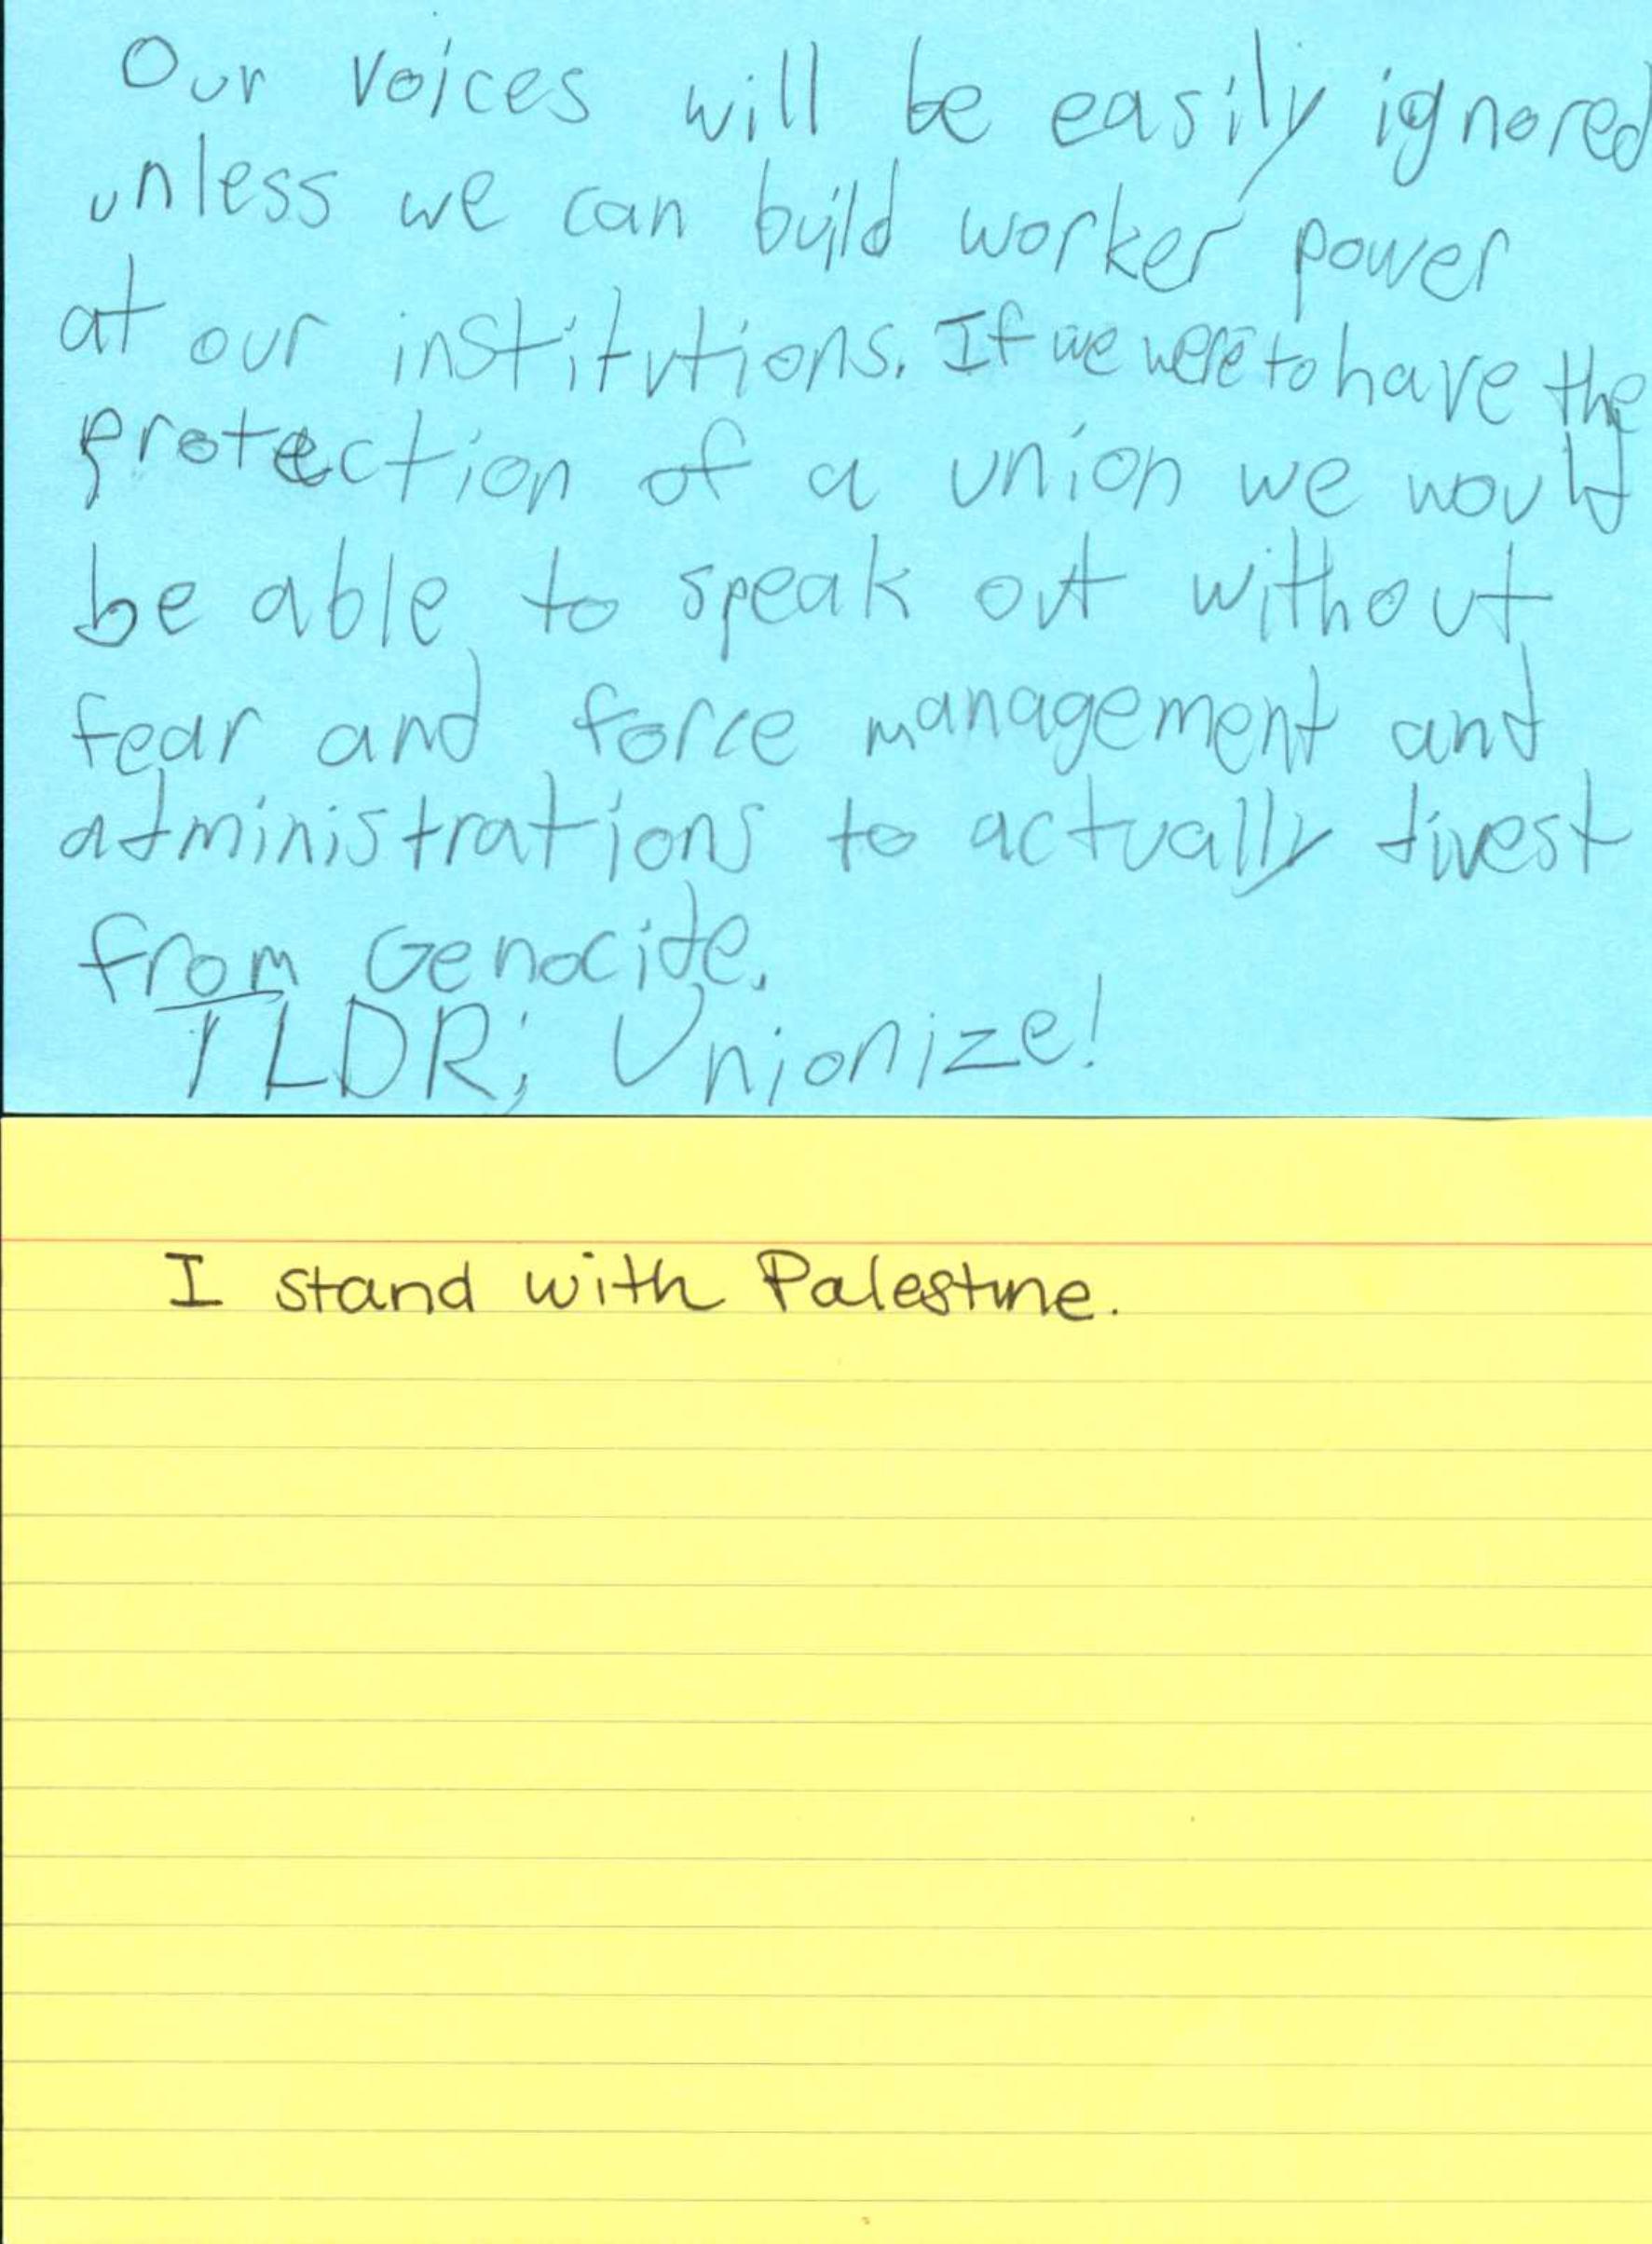 Our voices will be easily ignored
unless we can build worker power
at our institutions. If we were to have the
protection of a union we would
be able to speak out without
fear and force management and
administrations to actually divest
from Genocide.
TLDR; Unionize!
I stand with Palestine.